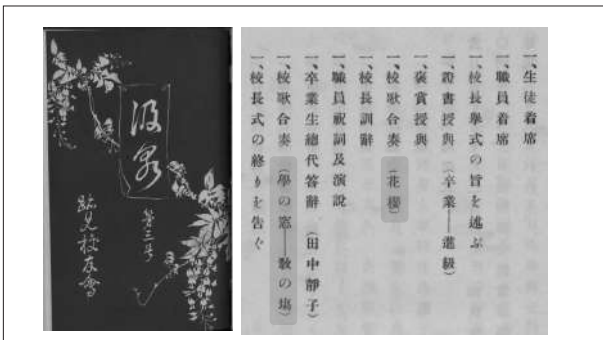 汲泉
第三号
跡見校友會
一、生徒着席
一、職員着席
一、校長擧式の旨を述ぶ
一、證書授與(卒業——進級)
一、褒賞授與
一、校歌合奏(花櫻)
一、校長訓辭
一、職員祝詞及演說
一、卒業生總代答辭(田中靜子)
一、校歌合奏(學の窓——敎の場)
一、校長式の終りを告ぐ